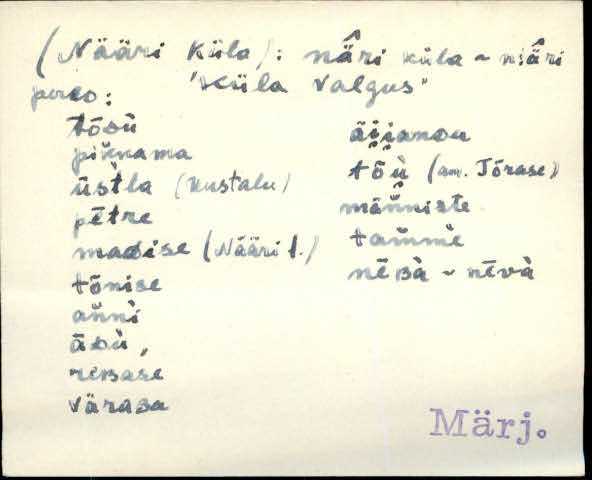 (Nääri küla): nä̂ri küla ~ niä̂ri
"küla valgus"
pered:
tõsù
piknama
üstla (Kustalu)
pētre
madise (Nääri t.)
tõnise
anni
āsu,
rebase
värasa
äi̬i̬andu
tõu̬ (am. Jõrase)
männiste
tamme
nēʙà ~ nēvà
Märj.